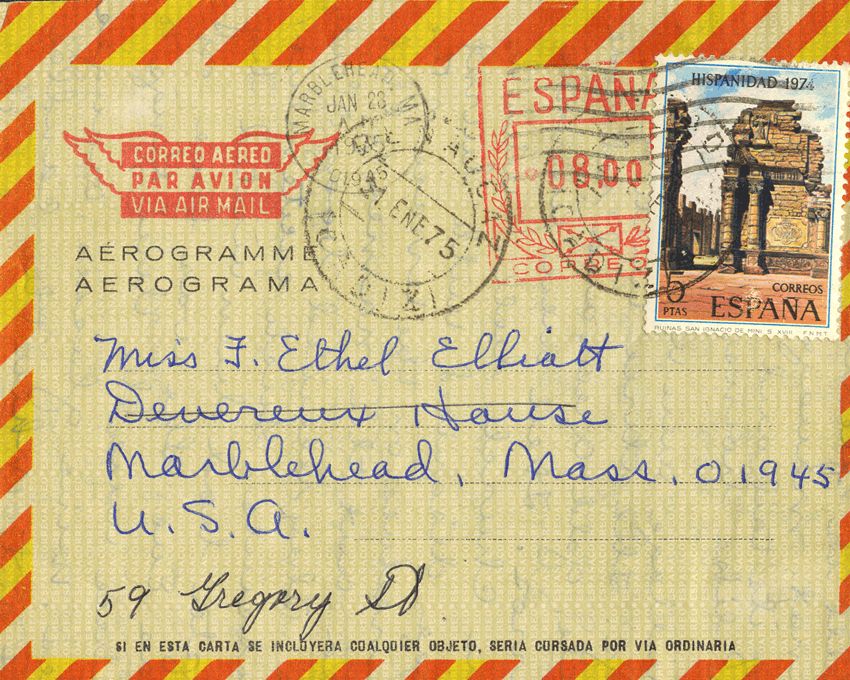 MARBLEHEAD, MA
JAN 28
1975
01945
21 ENE 75
ESPAÑA
08,00
CORREOS
HISPANIDAD 1974
CORREOS
5 PTAS ESPAÑA
RUINAS SAN IGNACIO DE MINI S. XVIII F.N.M.T.
CORREO AEREO
PAR AVION
VIA AIR MAIL
AÉROGRAMME
AEROGRAMA
Miss F. Ethel Elliott
Devereux House
Marblehead, Mass. 01945
U.S.A.
59 Gregory St
SI EN ESTA CARTA SE INCLUYERA CUALQUIER OBJETO, SERIA CURSADA POR VIA ORDINARIA